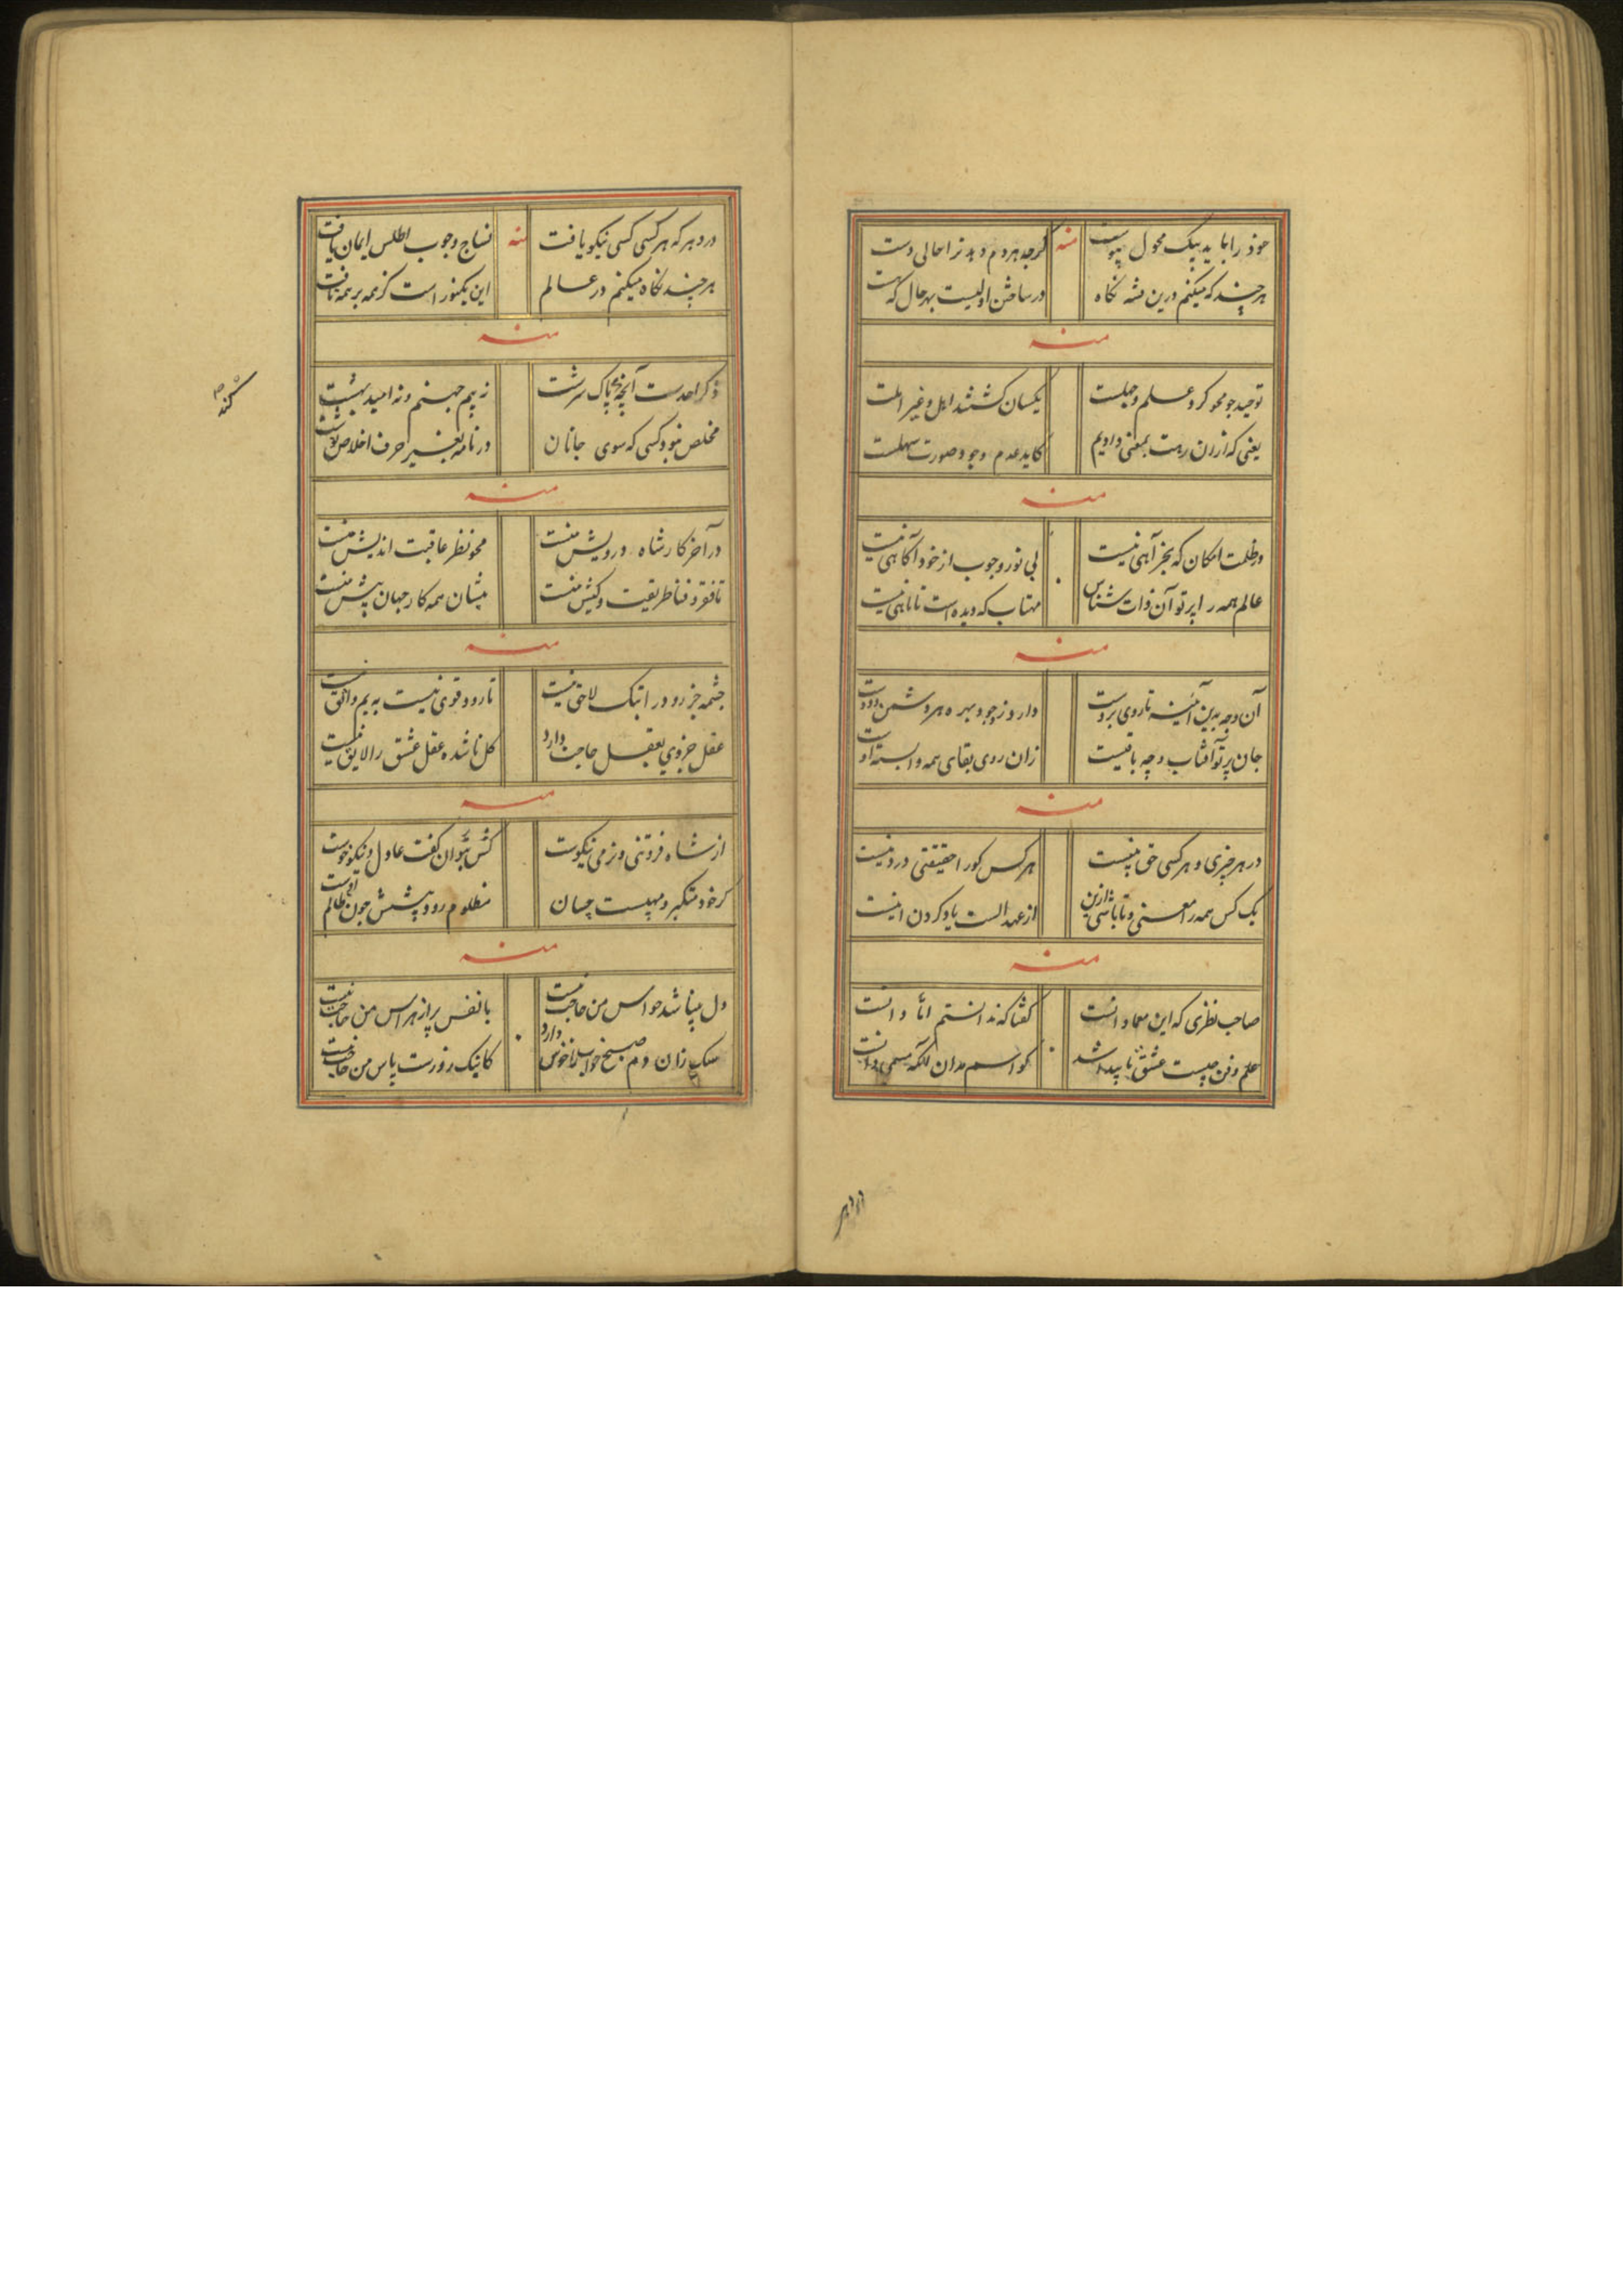 خود را باید بیک محول پیوست
منه
گرچه هر دم دهد ترا حالی دست
هر چند که میکنم درین نشه نگاه
در ساختن اولیست بهر حال که هست
منه
توحید چو محو کرد علم و جهلت
یکسان گشتند اهل و غیر اهلت
یعنی که ازان ربت بمعنی دادیم
کاید عدم وجود صورت سهلت
منه
در ظلمت امکان که بجز آهی نیست
بی نور وجوب از خود آگاهی نیست
عالم همه را پرتو آن ذات شناس
مهتاب که دیده است تا ماهی نیست
منه
آن وجه بدین آئینه تا روی بروست
دارد ز وجود بهره هر دشمن و دوست
جان پرتو آفتاب وجه باقیست
زان روی بقای همه وابسته اوست
منه
در هر چیزی و هر کسی حق چیست
هر کس کورا حقیقتی درد نیست
یک کس همه را معنی و تا باشی ازین
از عهد الست یاد کردن اینست
منه
صاحب نظری که این معما دانست
گفتا که ندانستم اما دانست
علم و فن چیست عشق تا پیدا شد
کو اسم مدان بلکه مسمی دانست
در دهر که هر کسی کسی نیکو یافت
منه
نساج وجوب اطلس ایمان بافت
هر چند نگاه میکنم در عالم
این یک نور است کز همه بر همه تافت
منه
ذکر احدست آنچه پاک سرشت
نه بیم جهنم و نه امید بهشت
مخلص نبود کسی که سوی جانان
در نامه بغیر حرف اخلاص نوشت
کند
منه
در آخر کار شاه درویش منست
محو نظر عاقبت اندیش منست
تا فقر و فنا طریقت و کیش منست
میشان همه کار جهان پیش منست
منه
چشمه جز رود را بتک لاحق نیست
تا رود قوی نیست به یم وافق نیست
عقل جزوی بعقل حاجت دارد
کل ناشده عقل عشق را لایق نیست
منه
از شاه فروتنی و نرمی نیکوست
کش بتوان گفت عادل و نیکو خوست
گر خود متکبر و مهیبست چسان
مظلوم رود پیشش چون ظالم اوست
منه
دل بینا شد حواس من حاجت نیست
با نفس پر از هراس من حاجت نیست
سگ زان دم صبح خواب را خوش دارد
کاینک روزست پاس من حاجت نیست